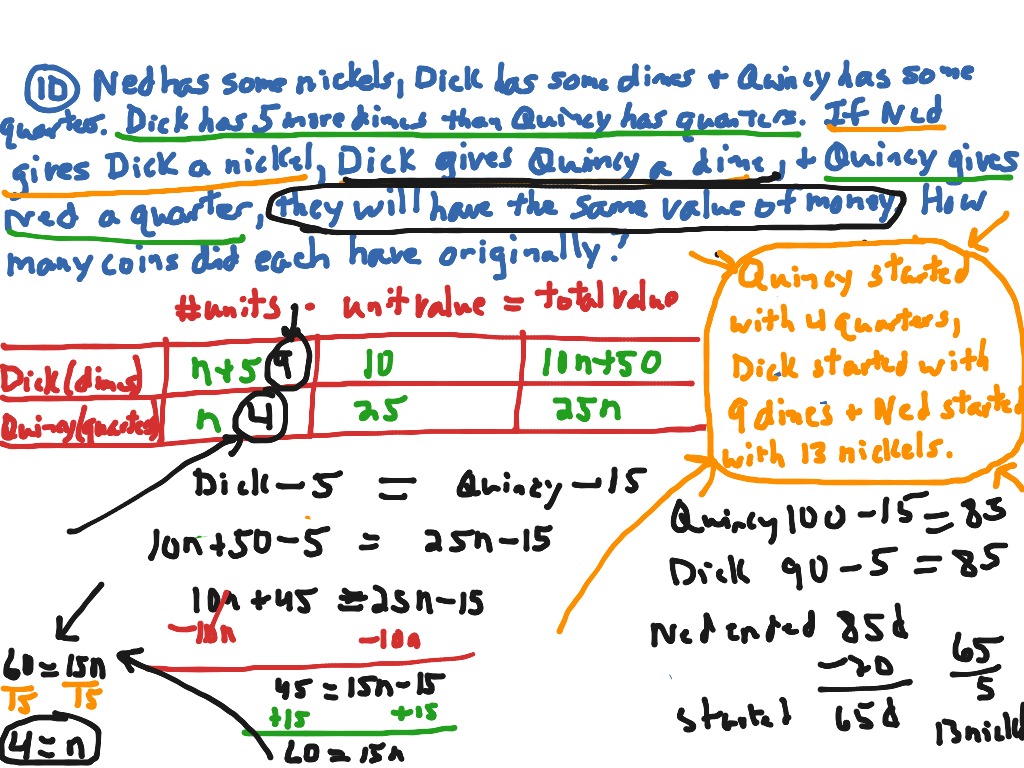 10 Ned has some nickels, Dick has some dimes + Quincy has some
quarters. Dick has 5 more dimes than Quincy has quarters. If Ned
gives Dick a nickel, Dick gives Quincy a dime, + Quincy gives
Ned a quarter, they will have the same value of money. How
many coins did each have originally?
#units · unit value = total value
Dick (dimes) n+5 9 10 10n+50
Quincy (quarters) n 4 25 25n
Quincy started
with 4 quarters,
Dick started with
9 dimes + Ned started
with 13 nickels.
Dick - 5 = Quincy - 15
10n+50-5 = 25n-15
10n+45 = 25n-15
-10n -10n
45 = 15n-15
+15 +15
60 = 15n
60 = 15n
15 15
4 = n
Quincy 100-15=85
Dick 90-5=85
Ned ended 85¢
-20
started 65¢
65
5
13 nickels